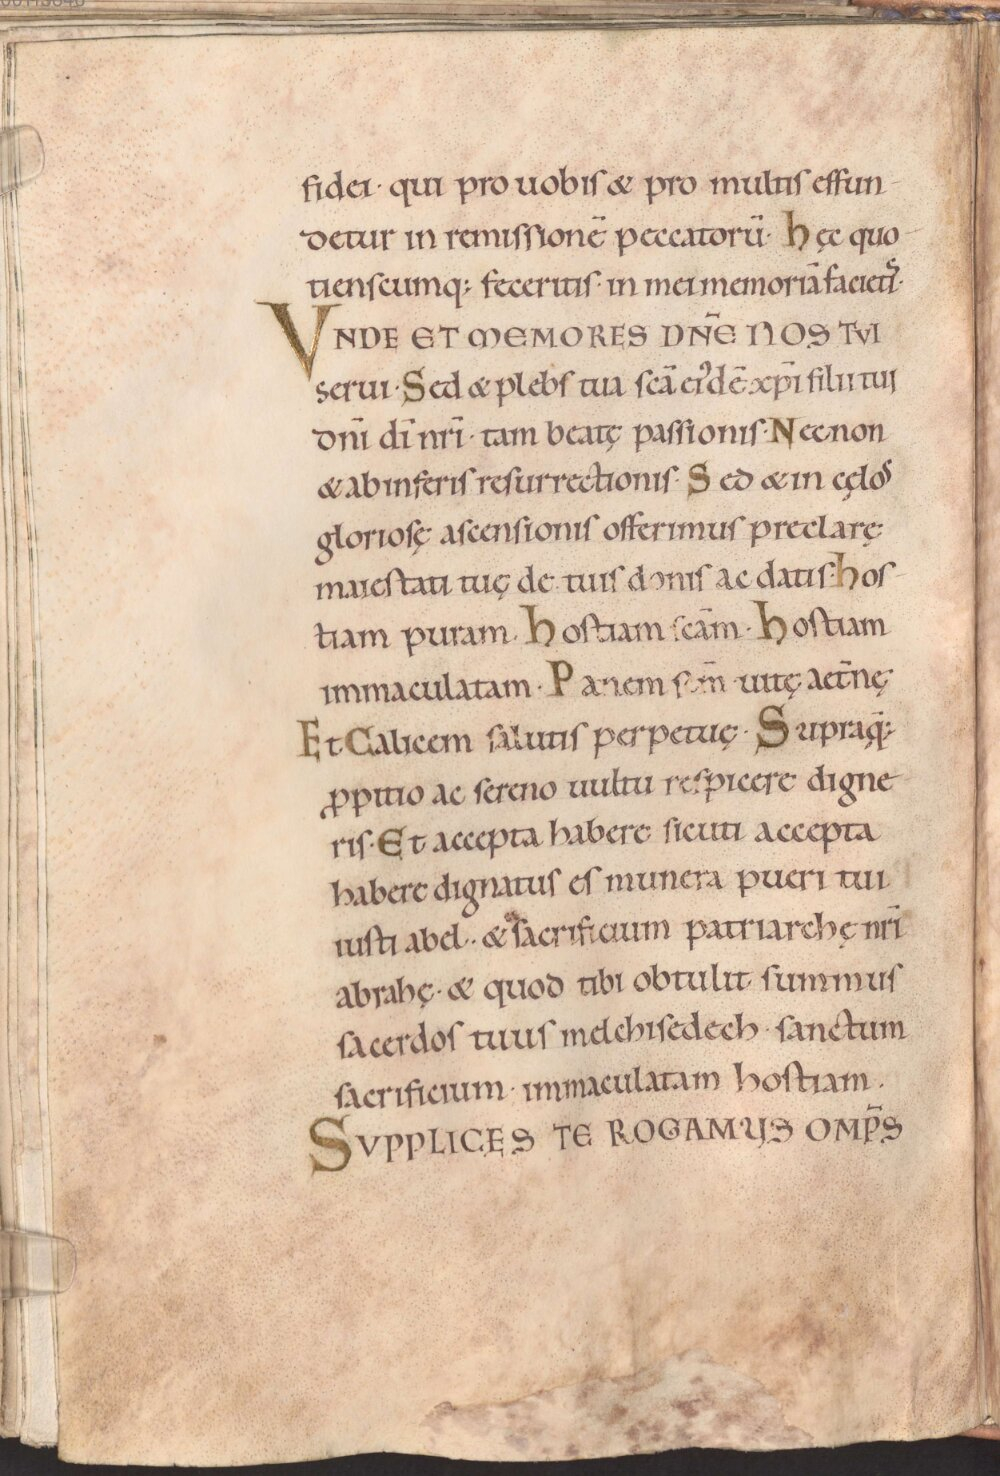 fidei · qui pro uobis & pro multis effun
detur in remissionē peccatorū · hęc quo
tienscumq; feceritis · in mei memoriā facietis ·
VNDE ET MEMORES DN̄E NOS TVI
serui · Sed & plebs tua scā ei'dē xp̄i filii tui
dnī dī nrī · tam beatę passionis · Nec non
& ab inferis resurrectionis · Sed & in cęlos
gloriosę ascensionis offerimus preclarę
maiestati tuę de tuis donis ac datis · hos
tiam puram · hostiam scām · hostiam
immaculatam · Panem scm̄ uitę aet̄nę
Et Calicem salutis perpetuę · Supra q̄;
ꝓpitio ac sereno uultu respicere digne
ris · Et accepta habere sicuti accepta
habere dignatus es munera pueri tui
iusti abel · & sacrificium patriarchę nrī
abrahę · & quod tibi obtulit summus
sacerdos tuus melchisedech · sanctum
sacrificium · immaculatam hostiam ·
SVPPLICES TE ROGAMUS OMP̄S